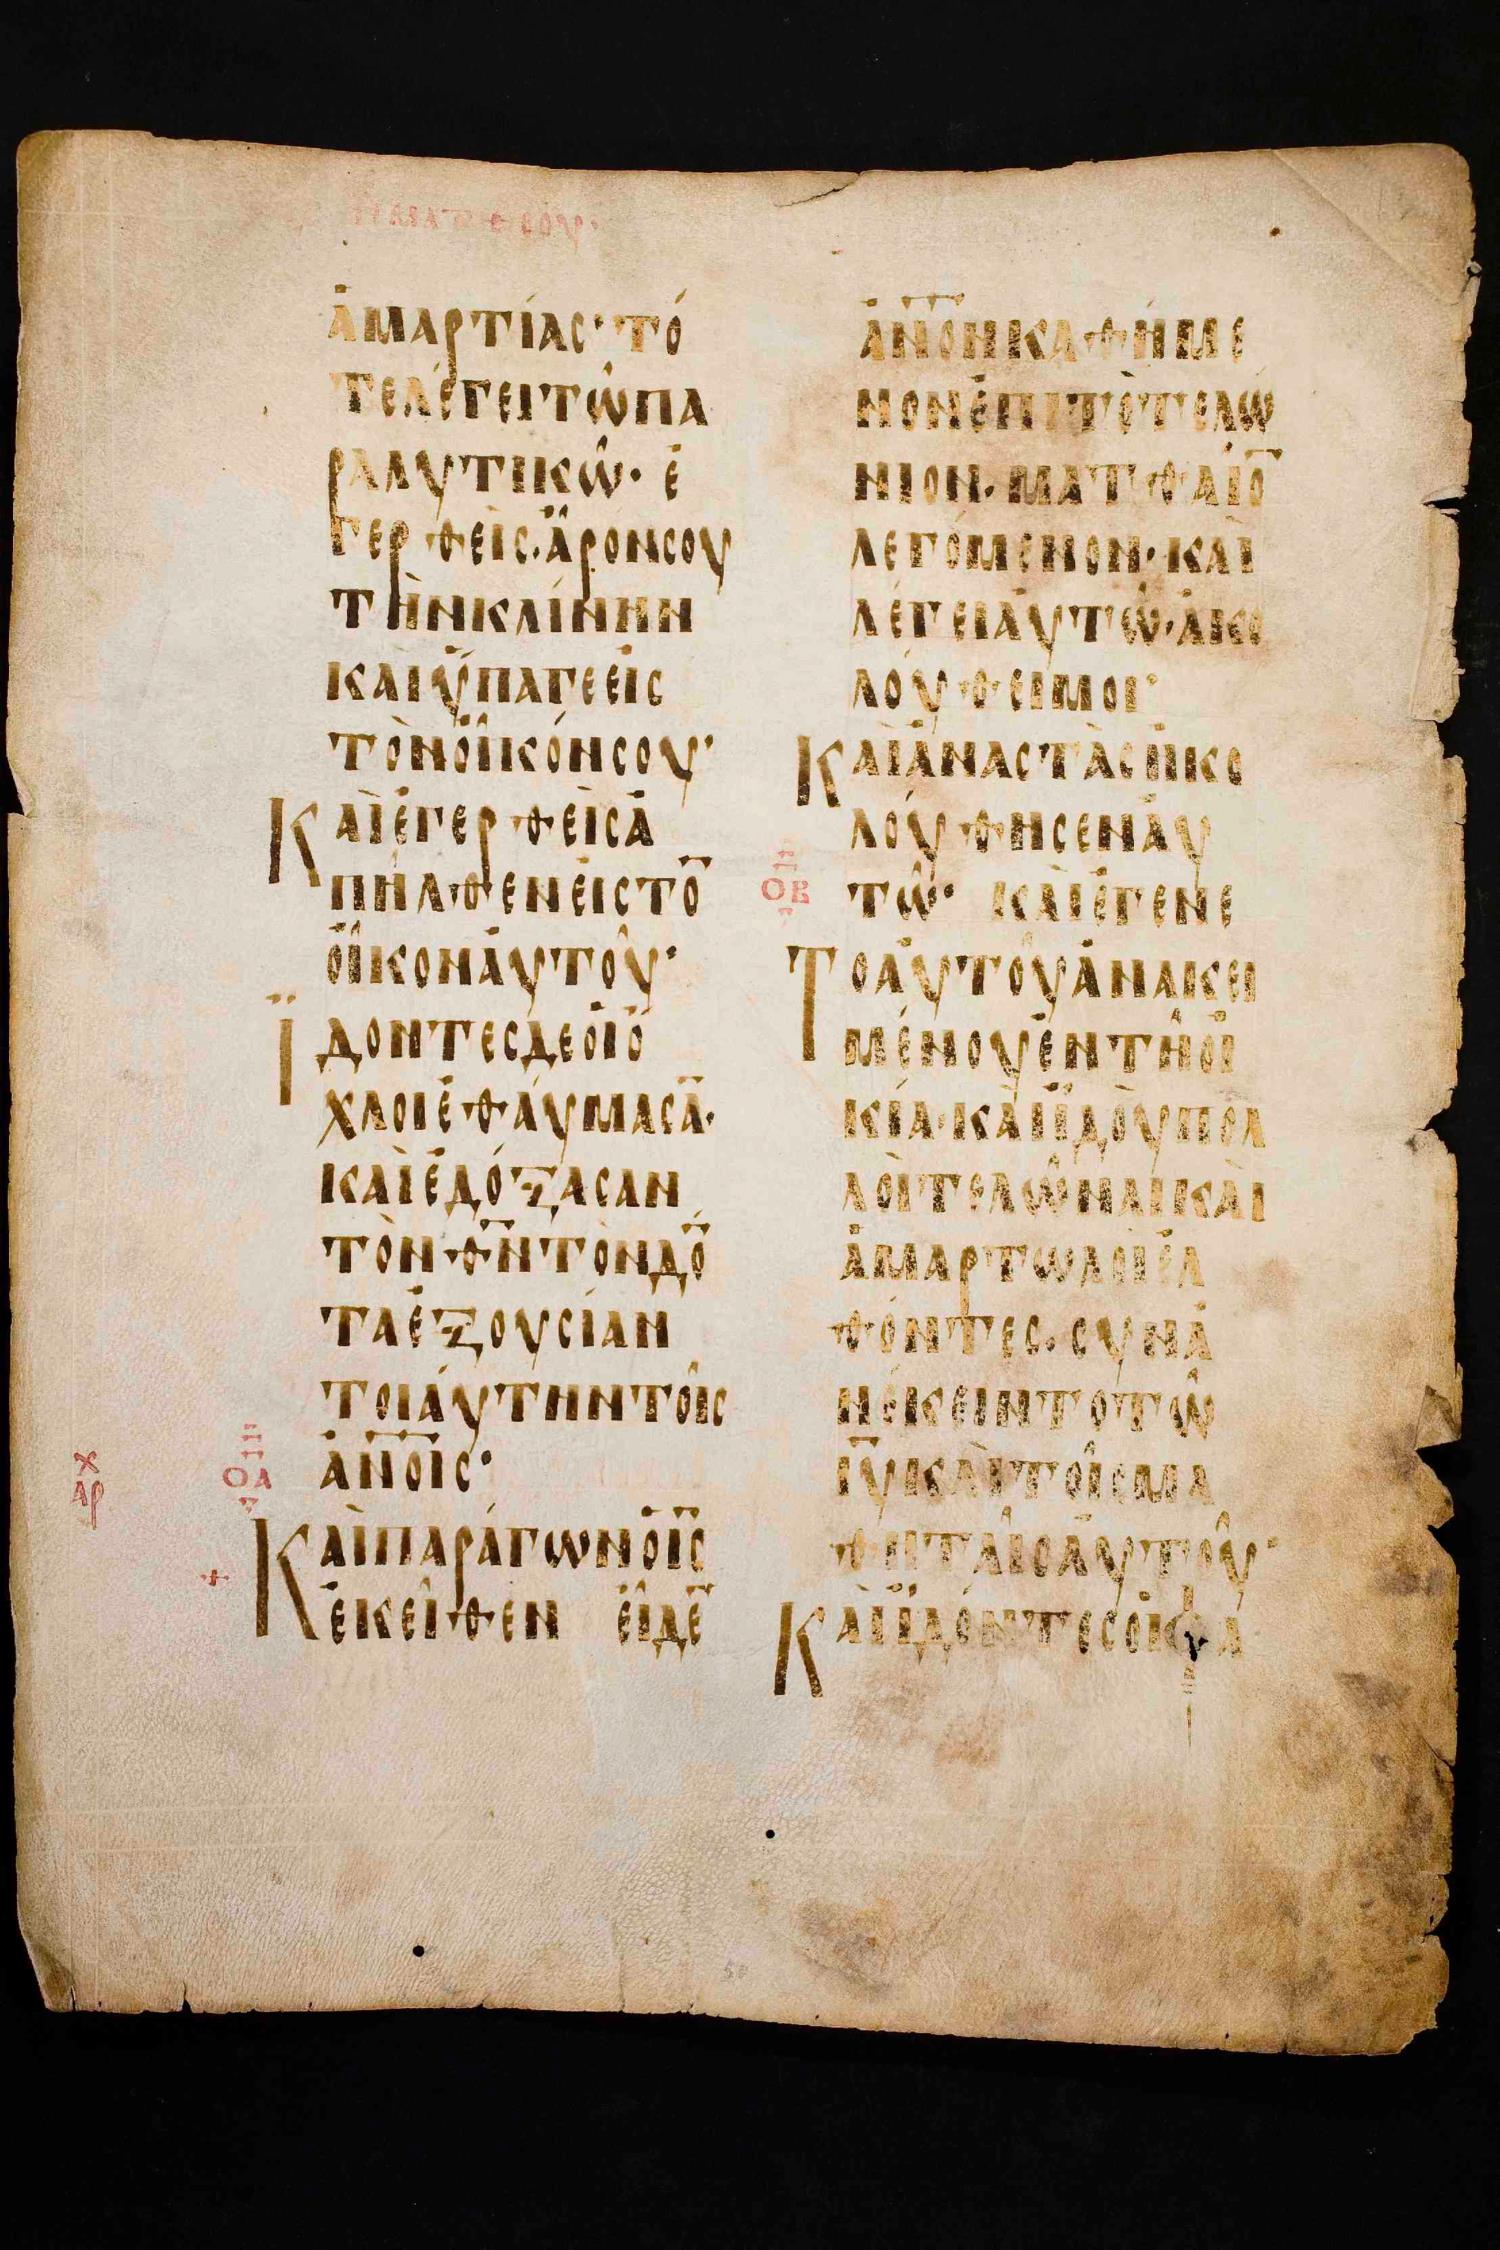 ἁμαρτίας· τό
τε λέγει τῷ πα
ραλυτικῷ· ἐ
γερθεὶς. ἆρόν σου
τὴν κλίνην
καὶ ὕπαγε εἰς
τὸν οἶκόν σου·
Καὶ ἐγερθεὶς ἀ
πῆλθεν εἰς το̅
οἶκον ἀυτοῦ·
Ϊδοντες δε οἱ ὀ
χλοι ἐθάυμασα̅·
καὶ ἐδόξασαν
τὸν θ̅ν̅ τὸν δο̅
τα ἐξουσίαν
τοιάυτην τοῖς
ἀν̅ο̅ις·
χ
αρ
οα
Καὶ παράγων ὁ ι̅ς̅
ἐκεῖθεν εἶδε̅
ἀν̅ο̅ν καθήμε
νον ἐπὶ τὸ τελώ
νιον. ματθαῖο̅
λεγόμενον· καὶ
λέγει ἀυτῷ· ἀκο
λόυθει μοι·
Καὶ ἀναστὰς ἠκο
λόυθησεν ἀυ
οβ
τῷ· καὶ ἐγένε
Το ἀυτοῦ ἀνακει
μένου ἐν τῇ οἰ
κία· καὶ ϊδοὺ πολ
λοὶ τελῶναι καὶ
ἁμαρτωλοὶ ἐλ
θόντες. συνα
νέκειντο τῷ
ι̅υ̅ καὶ τοῖς μα
θηταῖς ἀυτοῦ·
Καὶ ϊδόντες οἱ φα